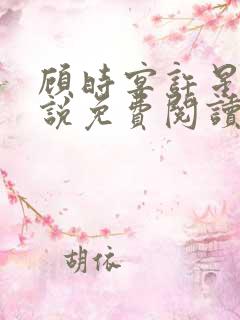 顾时宴許星
說免費閱讀
胡依